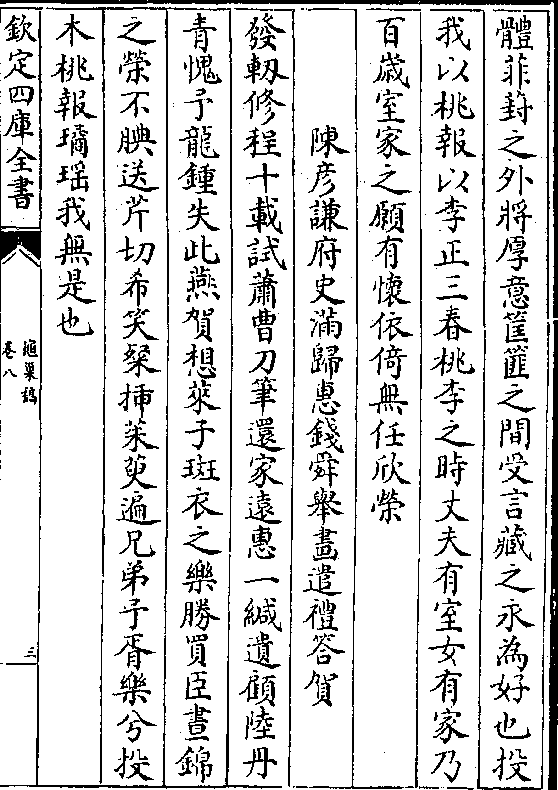 體菲葑之外將厚意筐篚之間受言藏之永為好也投
我以桃報以李正三春桃李之時丈夫有室女有家乃
百歳室家之願有懐依倚無任欣榮
陳彦謙府史滿歸惠錢舜舉畫遣禮答賀
發軔修程十載試蕭曹刀筆還家逺惠一緘遺顧陸丹
青愧予龍鍾失此燕賀想萊子斑衣之樂勝買臣晝錦
之榮不腆送芹切希笑粲揷茱萸遍兄弟子胥樂兮投
木桃報璚瑶我無是也
欽定四庫全書
龜巢稿
卷八
三